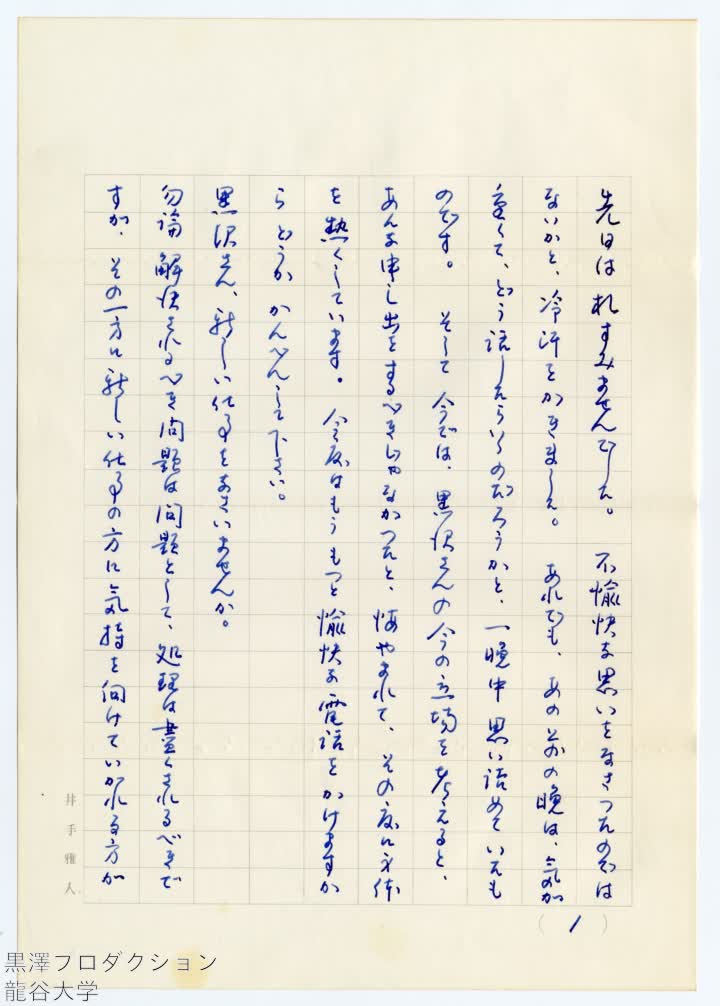 先日は相すみませんでした。 不愉快な思いをなさったのでは
ないかと、冷汗をかきました。 あれでも、あの前の晩は、気が
重くて、どう話したらいいのだろうかと、一晩中思い詰めていたも
のです。 そして今では、黒沢さんの今の立場を考えると、
あんな申し出をするべきじゃなかったと、悔やまれて、その度に身体
を熱くしています。 今度はもうもっと愉快な電話をかけますか
ら どうか かんべんして下さい。
黒沢さん、新しい仕事をなさいませんか。
勿論 解決されるべき問題は問題として、処理は尽くされるべきで
すが、その一方に新しい仕事の方に気持を向けていかれる方が
井手雅人
(1)
黒澤プロダクション
龍谷大学